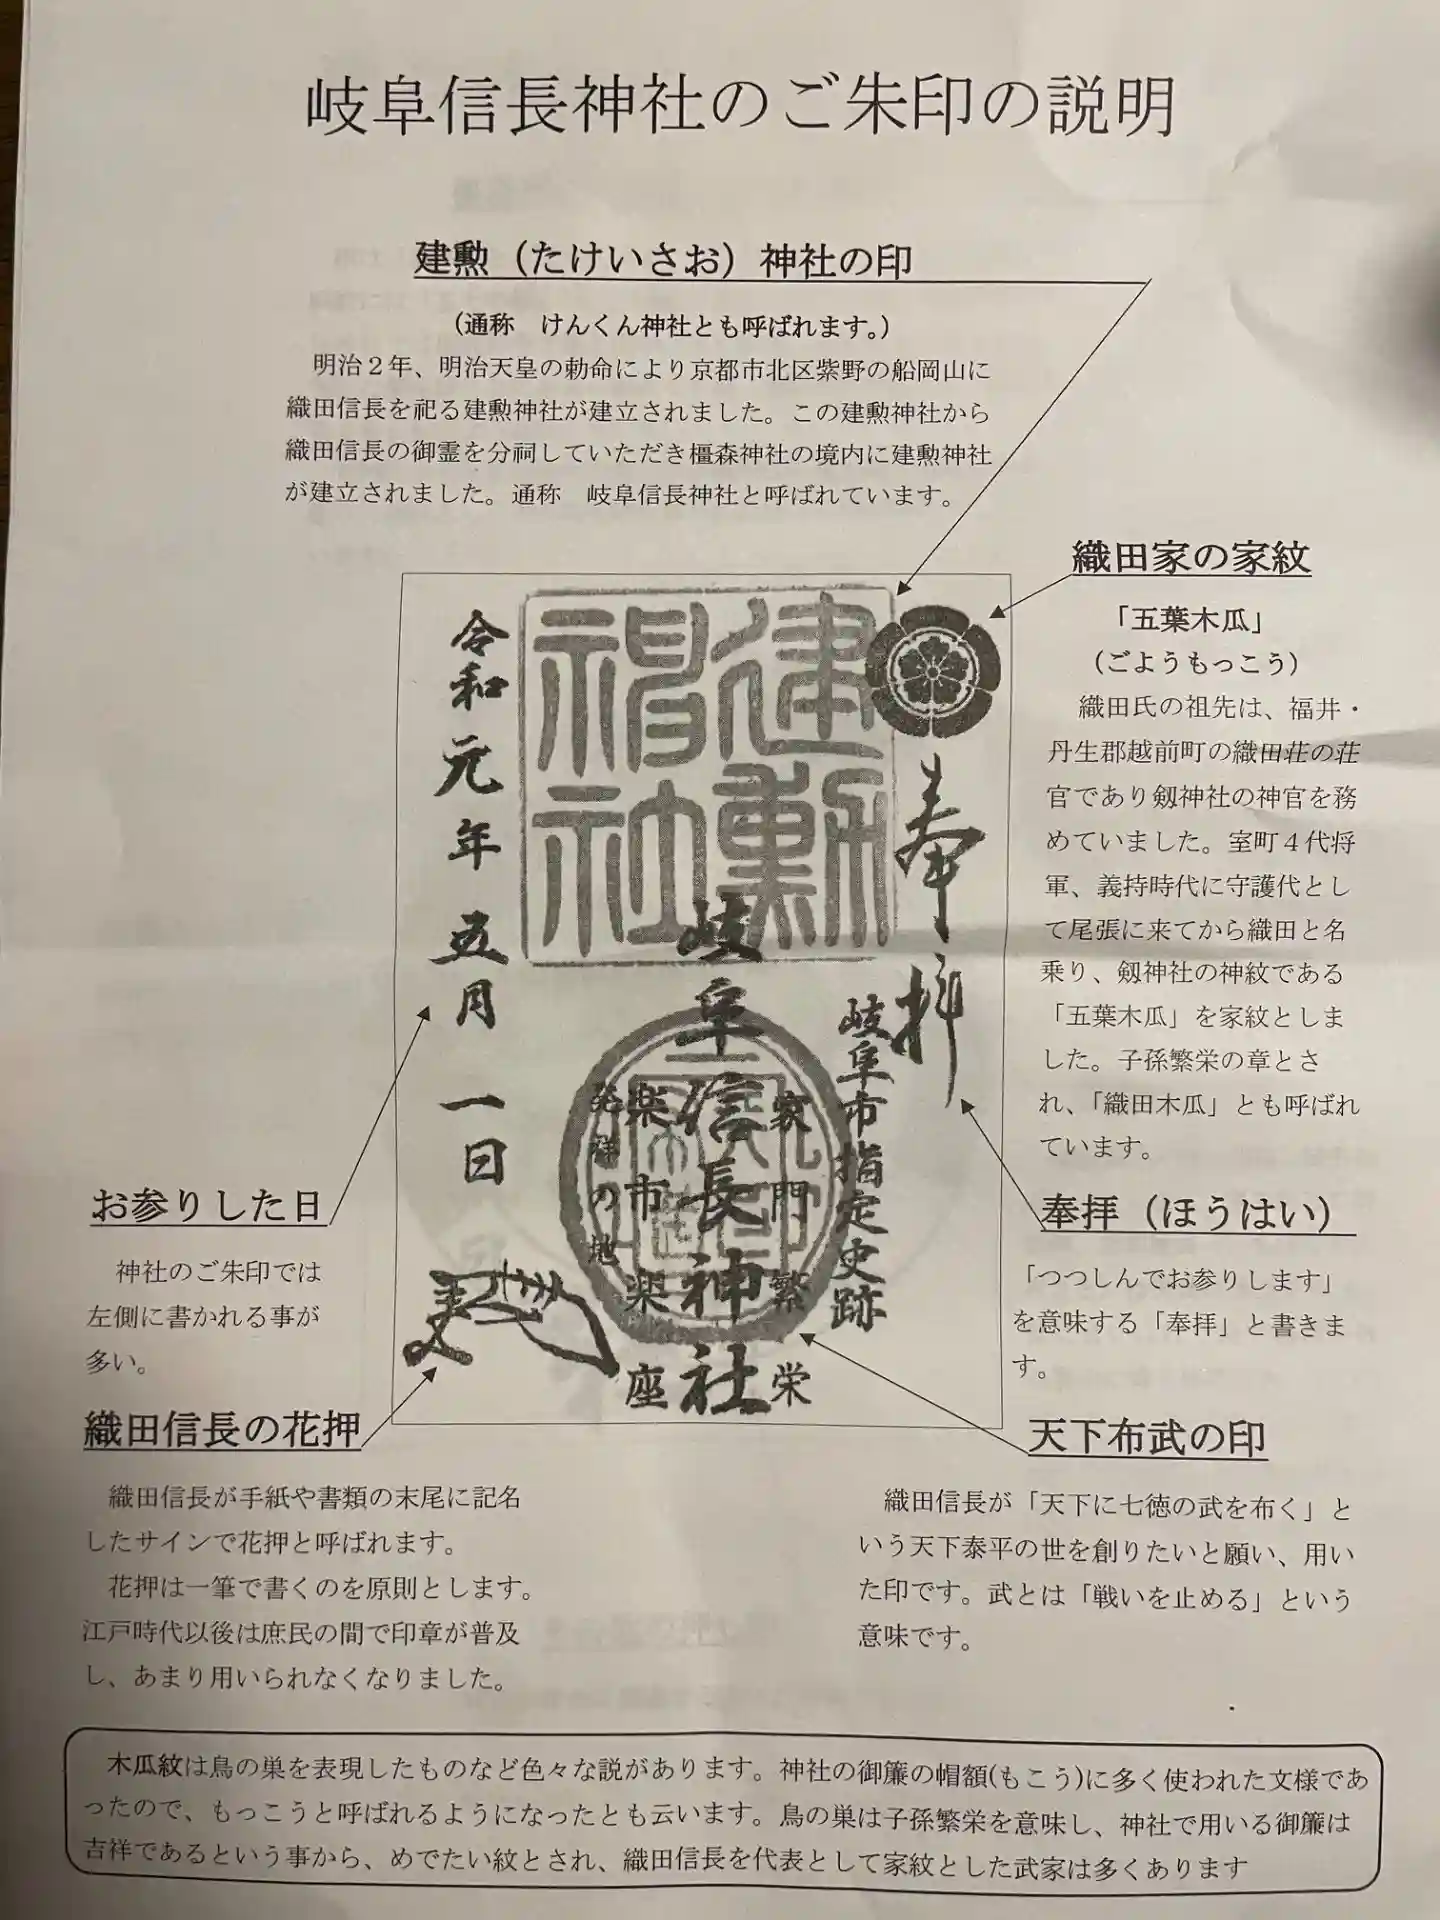 岐阜信長神社のご朱印の説明
建勲（たけいさお）神社の印
（通称　けんくん神社とも呼ばれます。）
明治２年、明治天皇の勅命により京都市北区紫野の船岡山に
織田信長を祀る建勲神社が建立されました。この建勲神社から
織田信長の御霊を分祠していただき橿森神社の境内に建勲神社
が建立されました。通称　岐阜信長神社と呼ばれています。
織田家の家紋
「五葉木瓜」
（ごようもっこう）
織田氏の祖先は、福井・
丹生郡越前町の織田荘の荘
官であり劔神社の神官を務
めていました。室町４代将
軍、義持時代に守護代とし
て尾張に来てから織田と名
乗り、劔神社の神紋である
「五葉木瓜」を家紋としま
した。子孫繁栄の章とさ
れ、「織田木瓜」とも呼ばれ
ています。
奉拝（ほうはい）
「つつしんでお参りします」
を意味する「奉拝」と書きま
す。
天下布武の印
織田信長が「天下に七徳の武を布く」と
いう天下泰平の世を創りたいと願い、用い
た印です。武とは「戦いを止める」という
意味です。
奉拝
岐阜市指定史跡
建勲
神社
家門繁栄
岐阜信長神社
楽市楽座
発祥の地
令和元年五月一日
お参りした日
神社のご朱印では
左側に書かれる事が
多い。
織田信長の花押
織田信長が手紙や書類の末尾に記名
したサインで花押と呼ばれます。
花押は一筆で書くのを原則とします。
江戸時代以後は庶民の間で印章が普及
し、あまり用いられなくなりました。
木瓜紋は鳥の巣を表現したものなど色々な説があります。神社の御簾の帽額(もこう)に多く使われた文様であ
ったので、もっこうと呼ばれるようになったとも云います。鳥の巣は子孫繁栄を意味し、神社で用いる御簾は
吉祥であるという事から、めでたい紋とされ、織田信長を代表として家紋とした武家は多くあります